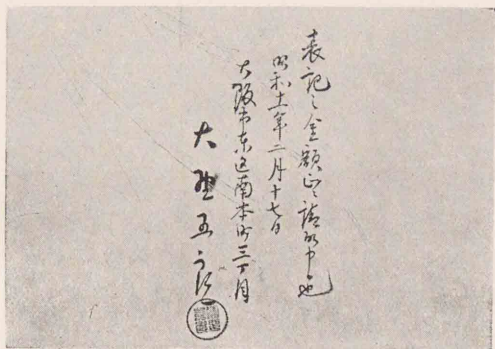 表記之金額正ニ請取申候也
昭和十一年二月十七日
大阪市東区南本町三丁目
大野五郎